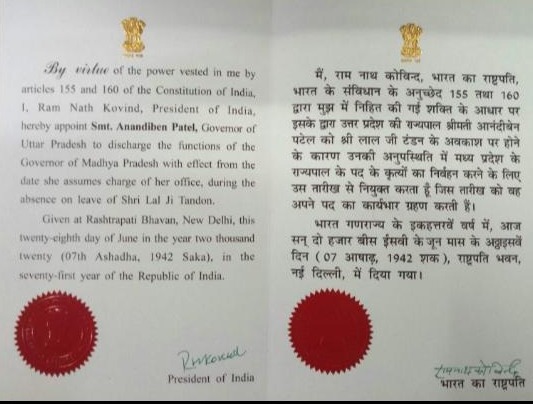 By virtue of the power vested in me by
articles 155 and 160 of the Constitution of India,
I, Ram Nath Kovind, President of India,
hereby appoint Smt. Anandiben Patel, Governor of
Uttar Pradesh to discharge the functions of the
Governor of Madhya Pradesh with effect from the
date she assumes charge of her office, during the
absence on leave of Shri Lal Ji Tandon.
Given at Rashtrapati Bhavan, New Delhi, this
twenty-eighth day of June in the year two thousand
twenty (07th Ashadha, 1942 Saka), in the
seventy-first year of the Republic of India.
President of India
मैं, राम नाथ कोविन्द, भारत का राष्ट्रपति,
भारत के संविधान के अनुच्छेद 155 तथा 160
द्वारा मुझ में निहित की गई शक्ति के आधार पर
इसके द्वारा उत्तर प्रदेश की राज्यपाल श्रीमती आनंदीबेन
पटेल को श्री लाल जी टंडन के अवकाश पर होने
के कारण उनकी अनुपस्थिति में मध्य प्रदेश के
राज्यपाल के पद के कृत्यों का निर्वहन करने के लिए
उस तारीख से नियुक्त करता हूँ जिस तारीख को वह
अपने पद का कार्यभार ग्रहण करती हैं।
भारत गणराज्य के इकहत्तरवें वर्ष में, आज
सन् दो हजार बीस ईसवी के जून मास के अट्ठाइसवें
दिन (07 आषाढ़, 1942 शक), राष्ट्रपति भवन,
नई दिल्ली, में दिया गया।
रामनाथ कोविन्द
भारत का राष्ट्रपति